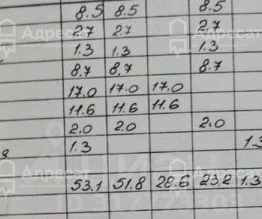 8.5 8.5 8.5
2.7 2.7 2.7
1.3 1.3 1.3
8.7 8.7 8.7
17.0 17.0 17.0
11.6 11.6 11.6
2.0 2.0 2.0
1.3 1.3
53.1 51.8 28.6 23.2 1.3